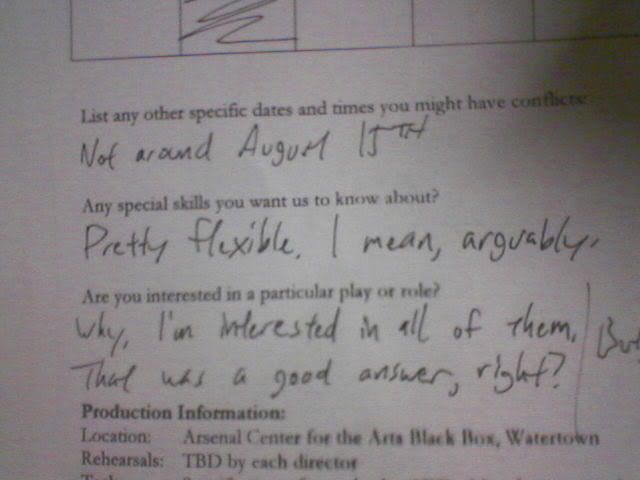 List any other specific dates and times you might have conflicts:
Not around August 15TH
Any special skills you want us to know about?
Pretty flexible. I mean, arguably.
Are you interested in a particular play or role?
Why, I'm interested in all of them. But
That was a good answer, right?
Production Information:
Location: Arsenal Center for the Arts Black Box, Watertown
Rehearsals: TBD by each director